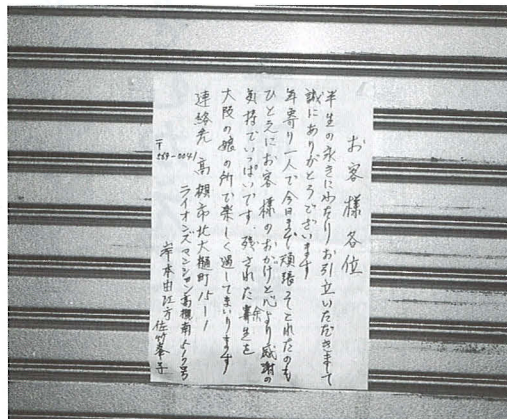 お客様各位
半生の永きにわたりお引立いただきまして
誠にありがとうございます
年寄り一人で今日まで頑張ってこれたのも
ひとえにお客様のおかげと心より感謝の
気持でいっぱいです。残された余生を
大阪の娘の所で楽しく過してまいります
連絡先 高槻市北大樋町15-1
〒569-0041
ライオンズマンション高槻南512号
岸本由江方 佐竹峯子